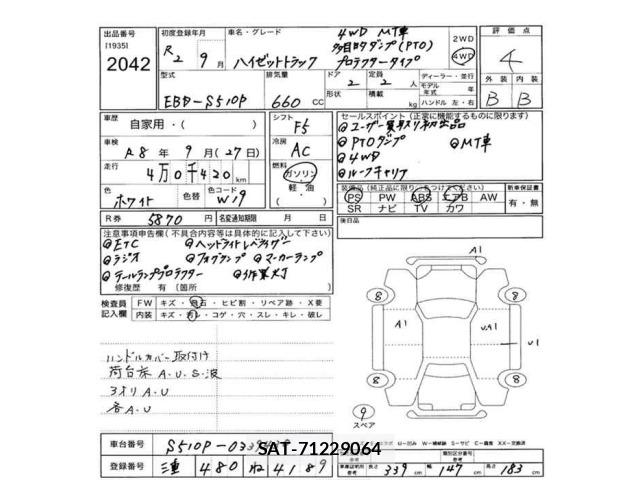 出品番号
[1935]
2042
初度登録年月
R2 9月
車名・グレード
ハイゼットトラック
4WD MT車
多目的ダンプ(PTO)
プロテクタータイプ
2WD
4WD
評価点
4
型式
EBD-S510P
排気量
660 cc
ドア 2
定員 2 人
形状
積載 kg
ディーラー・並行
モデル年式 年
ハンドル 左・右
外装 内装
B B
車歴
自家用・( )
シフト
F5
セールスポイント(正常に機能するものに限ります)
◎ユーザー買取り初出品
◎PTOダンプ ◎MT車
◎4WD
◎ルーフキャリア
車検
R8年 9月(27日)
冷房
AC
走行
4万0千420km
燃料
ガソリン
軽油
( )
色
ホワイト
色替
色コード
W19
装備品(純正品に限り○をつけてください)
PS PW ABS エアB AW
SR ナビ TV カワ
新車保証書
有・無
R券 5870円
名変通知期限 月 日
後日品
注意事項申告欄(不具合内容等は具体的に記入して下さい)
◎ETC ◎ヘッドライトレベライザー
◎ラジオ ◎フォグランプ ◎マーカーランプ
◎テールランププロテクター ◎作業灯
修復歴 有 [箇所
検査員記入欄
FW キズ・飛石・ヒビ割・リペア跡・X要
内装 キズ・汚レ・コゲ・穴・スレ・キレ・破レ
ハンドルカバー取付け
荷台床 A.U.S.波
3オリ A.U
各A.U
A1
8 8
A1 UA1 U1
8 8
9
スペア
車台番号
S510P-033
SAT-71229064
登録番号
三重 480 ね 4189
U-凹み W-補修跡 S-サビ C-腐食 XX-交換済
類別区分番号
参考
車庫証明用参考
長さ 339 cm 幅 147 cm 高さ 183 cm